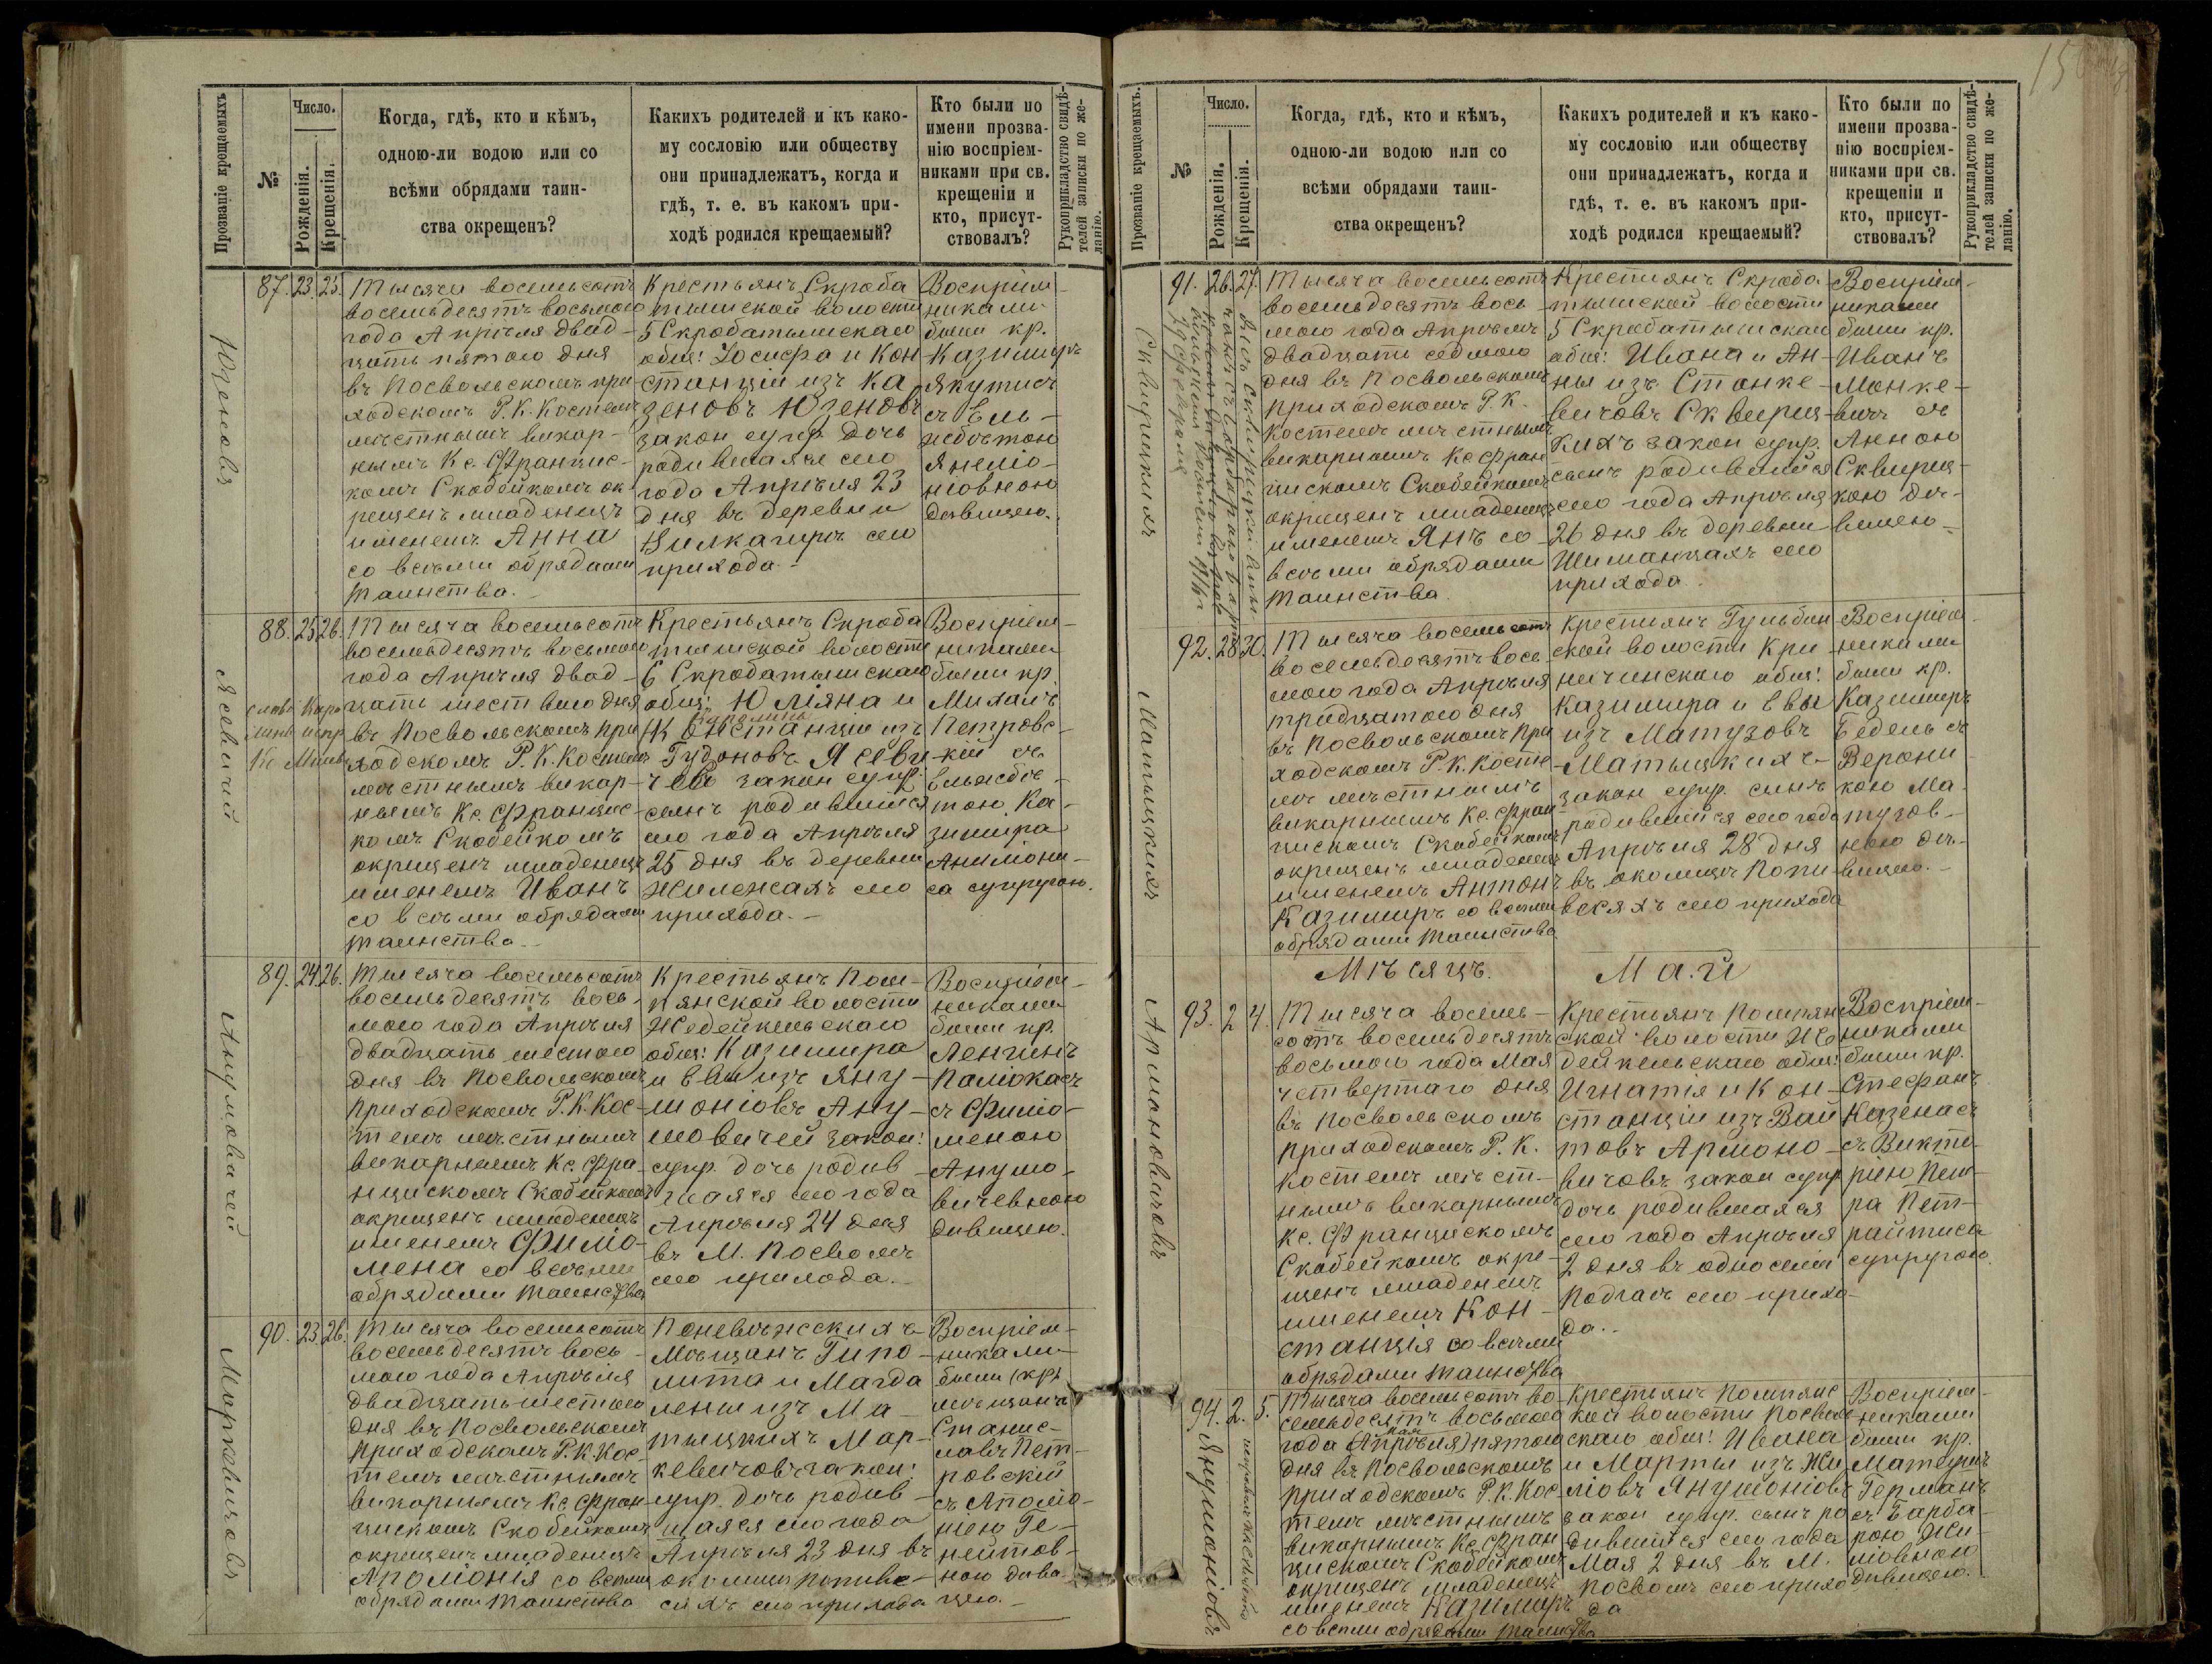 Прозваніе крещаемыхъ
№
Число.
Рожденія.
Крещенія.
Когда, гдѣ, кто и кѣмъ,
одною-ли водою или со
всѣми обрядами таин-
ства окрещенъ?
Какихъ родителей и къ како-
му сословію или обществу
они принадлежатъ, когда и
гдѣ, т. е. въ какомъ при-
ходѣ родился крещаемый?
Кто были по
имени прозва-
нію воспріем-
никами при св.
крещеніи и
кто, присут-
ствовалъ?
Рукоприкладство свидѣ-
телей записки по же-
ланію.
Юзеновъ
87. 23. 25.
Тысяча восемьсотъ
восемьдесятъ восьмого
года Апрѣля двад-
цать пятого дня
въ Посвольскомъ при
ходскомъ Р. К. Костелѣ
мѣстнымъ викар-
нымъ Кс. Францис-
комъ Скабейкомъ ок-
рещенъ младенецъ
именемъ Анна
со всѣми обрядами
таинства.
Крестьянъ Скроба
тышской волости
5 Скробатышскаго
общ: Іосифа и Кон
станціи изъ Ка
зеновъ Юзеновъ
закон супр. дочь
родившаяся сего
года Апрѣля 23
дня въ деревни
сего
прихода.
Воспріем-
никами
были кр.
Казимиръ
Якутисъ
съ Ель-
жбѣтою
девицею.
Ясевичей
88. 25 26.
Тысяча восемьсотъ
восемьдесятъ восьмого
года Апрѣля двад-
цать шестого дня
въ Посвольскомъ при
ходскомъ Р. К. Костелѣ
мѣстнымъ викар-
нымъ Кс. Францис-
комъ Скабейкомъ
окрещенъ младенецъ
именемъ Иванъ
со всѣми обрядами
таинства.
Крестьянъ Скроба
тышской волости
6 Скробатышскаго
общ: Юліяна и
Констанціи изъ
Гудоновъ Ясеви-
чей закон супр.
сынъ родившійся
сего года Апрѣля
25 дня въ деревни
Жиленжахъ сего
прихода.
Воспріем-
никами
были кр.
Михаилъ
Петровс-
кій съ
Ельжбѣ-
тою Ка-
зимира
са супругою.
Анумовичей
89. 24. 26.
Тысяча восемьсотъ
восемьдесятъ вось-
мого года Апрѣля
двадцать шестого
дня въ Посвольскомъ
приходскомъ Р. К. Кос-
телѣ мѣстнымъ
викарнымъ Кс. Фра-
нцискомъ Скабейкомъ
окрещенъ младенецъ
именемъ Фило-
мена со всѣми
обрядами таинства
Крестьянъ Пом-
пянской волости
Жедейкельскаго
общ: Казимира
и Евы изъ Яну-
шоніовъ Ану-
мовичей закон:
супр. дочь родив
шаяся сего года
Апрѣля 24 дня
въ М. Посволѣ
сего прихода.
Воспріем-
никами
были кр.
съ Фило-
меною
Анумо-
вичевною
дѣвицею.
Маркевичовъ
90. 23. 26.
Тысяча восемьсотъ
восемьдесятъ вось-
мого года Апрѣля
двадцать шестого
дня въ Посвольскомъ
приходскомъ Р. К. Кос-
телѣ мѣстнымъ
викарнымъ Кс. Фран
цискомъ Скабейкомъ
окрещенъ младенецъ
Аполонія со всѣми
обрядами таинства
Поневѣжскихъ
Мѣщанъ Гипо-
лита и Магда
лены изъ Ма-
тыцкихъ Мар-
кевичовъ закон:
супр. дочь родив-
шаяся сего года
Апрѣля 23 дня въ
околицы Попиве-
сяхъ сего прихода
Воспріем-
никами
были (кр)
мѣщанъ
Станис-
лавъ Пет-
ровскій
съ Аполо-
ніею Ге-
нейтов-
ною дѣви-
цею.
Прозваніе крещаемыхъ.
№
Число.
Рожденія.
Крещенія.
Когда, гдѣ, кто и кѣмъ,
одною-ли водою или со
всѣми обрядами таин-
ства окрещенъ?
Какихъ родителей и къ како-
му сословію или обществу
они принадлежатъ, когда и
гдѣ, т. е. въ какомъ при-
ходѣ родился крещаемый?
Кто были по
имени прозва-
нію воспріем-
никами при св.
крещеніи и
кто, присут-
ствовалъ?
Рукоприкладство свидѣ-
телей записки по же-
ланію.
Сквирицкихъ
91. 26. 27.
Тысяча восемьсотъ
восемьдесятъ вось-
мого года Апрѣля
двадцать седмого
дня въ Посвольскомъ
приходскомъ Р. К.
Костелѣ мѣстнымъ
викарнымъ Кс Фран
цискомъ Скабейкомъ
окрещенъ младенецъ
именемъ Янъ со
всѣми обрядами
таинства
Крестьянъ Скроба
тышской волости
5 Скробатышскаго
общ: Ивана и Ан-
ны изъ Станке-
вичовъ Сквириц-
кихъ закон супр.
сынъ родившійся
сего года Апрѣля
26 дня въ деревни
Шиманцахъ сего
прихода.
Воспріем-
никами
были кр.
Иванъ
Монке-
вичъ съ
Анною
Сквириц-
кою дѣ-
вицею
Матыцкихъ
92. 28 30.
Тысяча восемьсотъ
восемьдесятъ вось
мого года Апрѣля
тридцатого дня
въ Посвольскомъ при
ходскомъ Р. К. Косте-
лѣ мѣстнымъ
викарнымъ Кс. Фран
цискомъ Скабейкомъ
окрещенъ младенецъ
именемъ Антонъ
Казимиръ со всѣми
обрядами таинства
Крестьянъ Гульбин
ской волости Кри
ничинскаго общ:
Казимира и Евы
изъ Матузовъ
Матыцкихъ
закон супр. сынъ
родившійся сего года
Апрѣля 28 дня
въ околицѣ Попи
весяхъ сего прихода
Воспріем-
никами
были кр.
Казимиръ
Бедель съ
Верони
кою Ма
тузов-
ною дѣ-
вицею.
Мѣсяцъ. Май
Армоновичовъ
93. 2 4.
Тысяча восемь-
сотъ восемьдесятъ
восьмого года Мая
четвертаго дня
въ Посвольскомъ
приходскомъ Р. К.
Костелѣ мѣст-
нымъ викарнымъ
Кс. Францискомъ
Скабейкомъ окре-
щенъ младенецъ
именемъ Кон-
станція со всѣми
обрядами таинства
Крестьянъ Помпян
ской волости Же
дейкельскаго общ:
Игнатія и Кон-
станціи изъ Вай
товъ Армоно-
вичовъ закон супр
дочь родившаяся
сего года Апрѣля
2 дня въ односеліи
Подгай сего прихо-
да.
Воспріем-
никами
были кр.
Стефанъ
Казенасъ
съ Викто-
ріею Пет-
ра Пет-
райтиса
супругою.
Янушоніовъ
94. 2. 5.
Тысяча восемьсотъ во-
семьдесятъ восьмого
мая
года (Апрѣля) пятого
дня въ Посвольскомъ
приходскомъ Р. К. Кос-
телѣ мѣстнымъ
викарнымъ Кс. Фран
цискомъ Скабейкомъ
окрещенъ младенецъ
именемъ Казимиръ
со всѣми обрядами таинства
Крестьянъ Помпянс
кой волости Посволь
скаго общ: Ивана
и Марты изъ Жи
ліовъ Янушоніовъ
закон супр. сынъ ро
дившійся сего года
Мая 2 дня въ М.
Посволѣ сего прихо
да
Воспріем-
никами
были кр.
Матеушъ
Германъ
съ Барба-
рою Жи-
ліовною
дѣвицею.